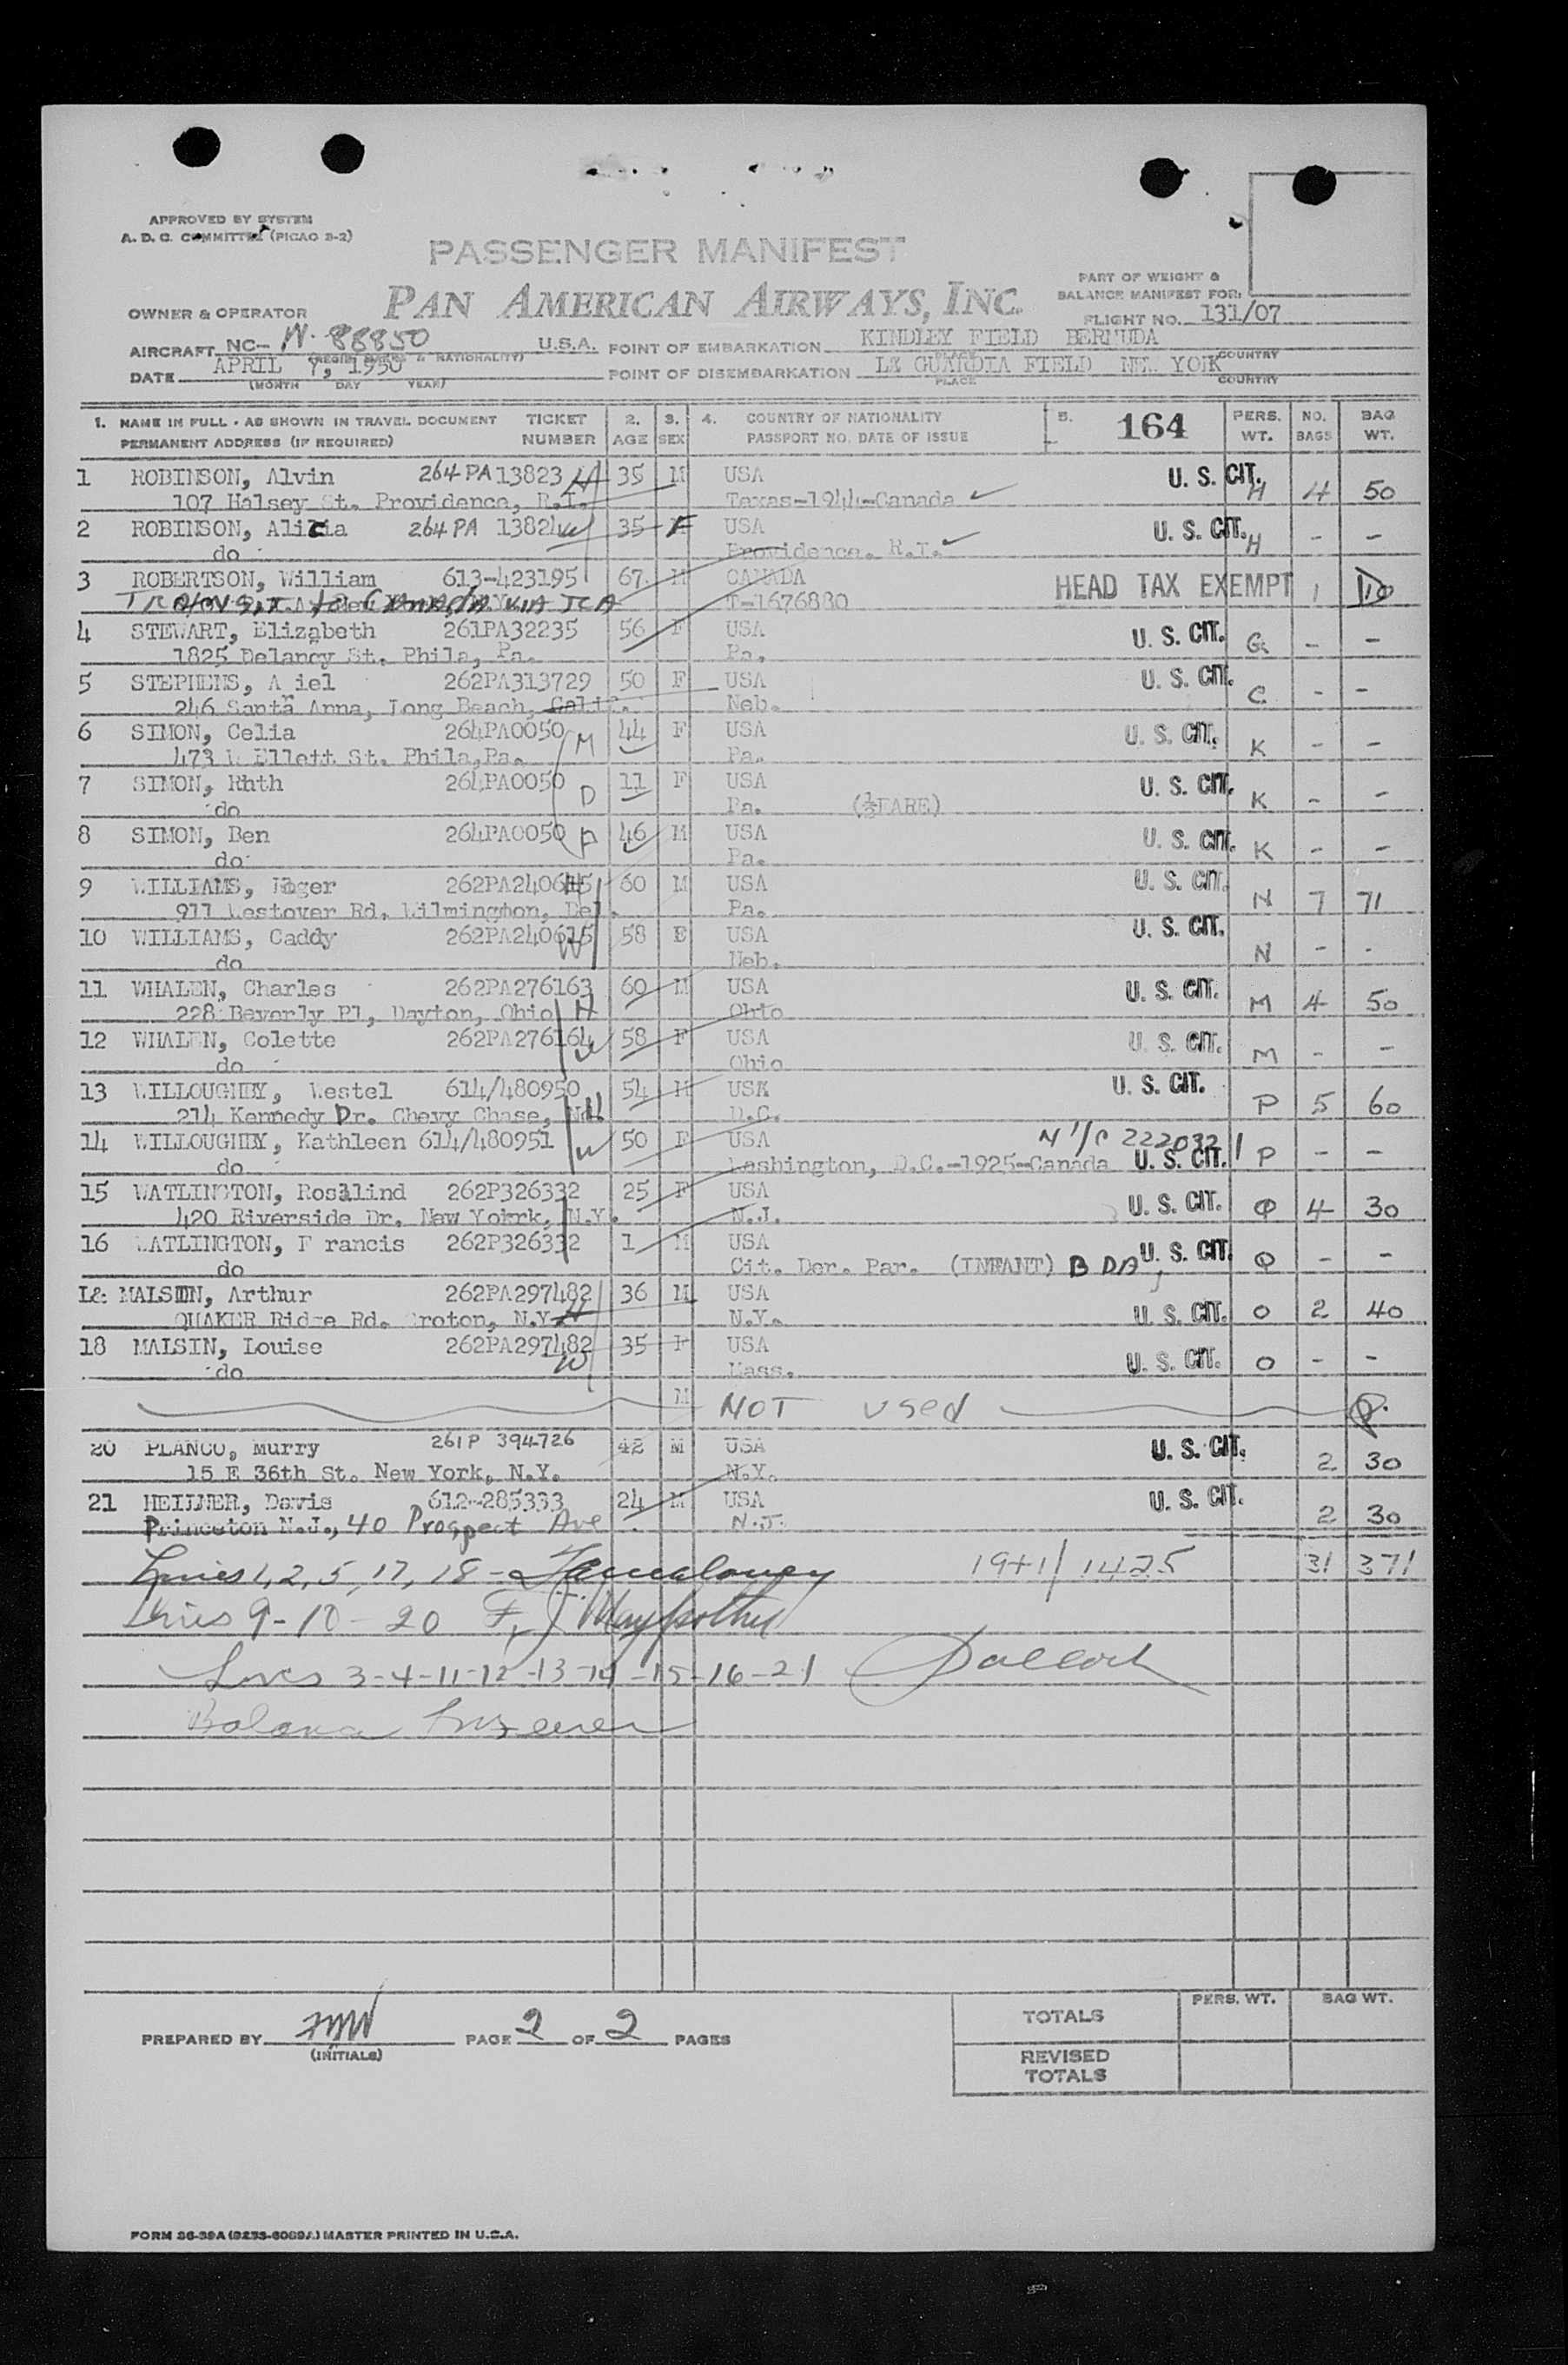 APPROVED BY SYSTEM
A. D. C. COMMITTEE (PICAO 2-2)
PASSENGER MANIFEST
PAN AMERICAN AIRWAYS, INC.
PART OF WEIGHT &
BALANCE MANIFEST FOR:
OWNER & OPERATOR
FLIGHT NO. 131/07
AIRCRAFT NC- N. 88850 U.S.A. POINT OF EMBARKATION KINDLEY FIELD BERMUDA
(REGIS. MARKS & NATIONALITY) PLACE COUNTRY
DATE APRIL 7, 1950 POINT OF DISEMBARKATION LA GUARDIA FIELD NEW YORK
(MONTH DAY YEAR) PLACE COUNTRY
1. NAME IN FULL - AS SHOWN IN TRAVEL DOCUMENT TICKET 2. 3. 4. COUNTRY OF NATIONALITY 5. 164 PERS. NO. BAG
PERMANENT ADDRESS (IF REQUIRED) NUMBER AGE SEX PASSPORT NO. DATE OF ISSUE WT. BAGS WT.
1 ROBINSON, Alvin 264PA13823 H 35 M USA U. S. CIT. H 4 50
107 Halsey St. Providence, R.I. Texas-1944-Canada ✓
2 ROBINSON, Alicia 264PA 13824 W 35 F USA U. S. CIT. H - -
do Providence. R.I. ✓
3 ROBERTSON, William 613-423195 67 M CANADA HEAD TAX EXEMPT 1 10
Transit to Canada via TCA T-1676880
4 STEWART, Elizabeth 261PA32235 56 F USA U. S. CIT. G - -
1825 Delancy St. Phila, Pa. Pa.
5 STEPHENS, A iel 262PA313729 50 F USA U. S. CIT. C - -
246 Santa Anna, Long Beach, Calif. Neb.
6 SIMON, Celia 264PA0050 M 44 F USA U. S. CIT. K - -
473 W Ellett St. Phila,Pa. Pa.
7 SIMON, Rhth 264PA0050 D 11 F USA U. S. CIT. K - -
do Pa. (½FARE)
8 SIMON, Ben 264PA0050 F 46 M USA U. S. CIT. K - -
do Pa.
9 WILLIAMS, Roger 262PA240615 H 60 M USA U. S. CIT. N 7 71
911 Westover Rd. Wilmington, Del. Pa.
10 WILLIAMS, Caddy 262PA240615 W 58 E USA U. S. CIT. N - -
do Neb.
11 WHALEN, Charles 262PA276163 60 M USA U. S. CIT. M 4 50
228 Beverly Pl, Dayton, Ohio H Ohio
12 WHALEN, Colette 262PA276164 W 58 F USA U. S. CIT. M - -
do Ohio
13 WILLOUGHBY, Westel 614/480950 54 M USA U. S. CIT. P 5 60
214 Kennedy Dr. Chevy Chase, Md. H D.C.
14 WILLOUGHBY, Kathleen 614/480951 W 50 F USA 222032 U. S. CIT. P - -
do Washington, D.C.-1925-Canada
15 WATLINGTON, Rosalind 262P326332 25 F USA U. S. CIT. Q 4 30
420 Riverside Dr. New Yokrk, N.Y. N.J.
16 WATLINGTON, F rancis 262P326332 1 M USA U. S. CIT. Q - -
do Cit. Der. Par. (INFANT) B DA
1& MALSIN, Arthur 262PA297482 36 M USA U. S. CIT. O 2 40
QUAKER Ridge Rd. Croton, N.Y. H N.Y.
18 MALSIN, Louise 262PA297482 W 35 F USA U. S. CIT. O - -
do Mass.
M NOT used
20 PLANCO, Murry 261P 394726 42 M USA U. S. CIT. 2 30
15 E 36th St. New York, N.Y. N.Y.
21 HEILNER, Davis 612-285333 24 M USA U. S. CIT. 2 30
Princeton N.J., 40 Prospect Ave N.J.
Lines 1, 2, 5, 17, 18 - 19+1/1425 31 371
Lines 9-10-20 F. J.
Lines 3-4-11-12-13-14-15-16-21
Balance
PREPARED BY PAGE 2 OF 2 PAGES
(INITIALS)
PERS. WT. BAG WT.
TOTALS
REVISED
TOTALS
FORM 36-39A (9233-6089A) MASTER PRINTED IN U.S.A.